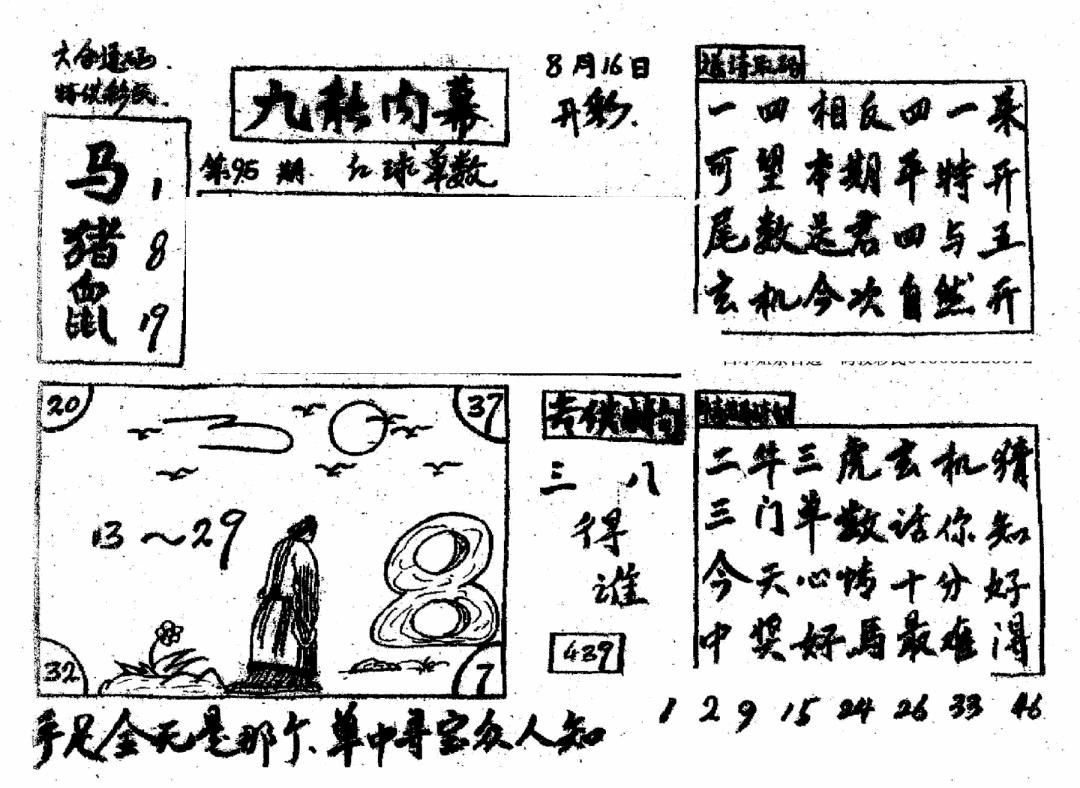 六合透码.
特供彩民.
九龍内幕
8月16日
开彩.
第95期 红球单数
马 1
猪 8
鼠 19
一四相反四一来
可望本期平特开
尾数是君四与五
玄机今次自然开
20
37
13~29
32
7
三 八
得
谁
439
二牛三虎玄机精
三门单数话你知
今天心情十分好
中奖好馬最难得
手足金天是那个、单中寻宝众人知
1 2 9 15 24 26 33 46